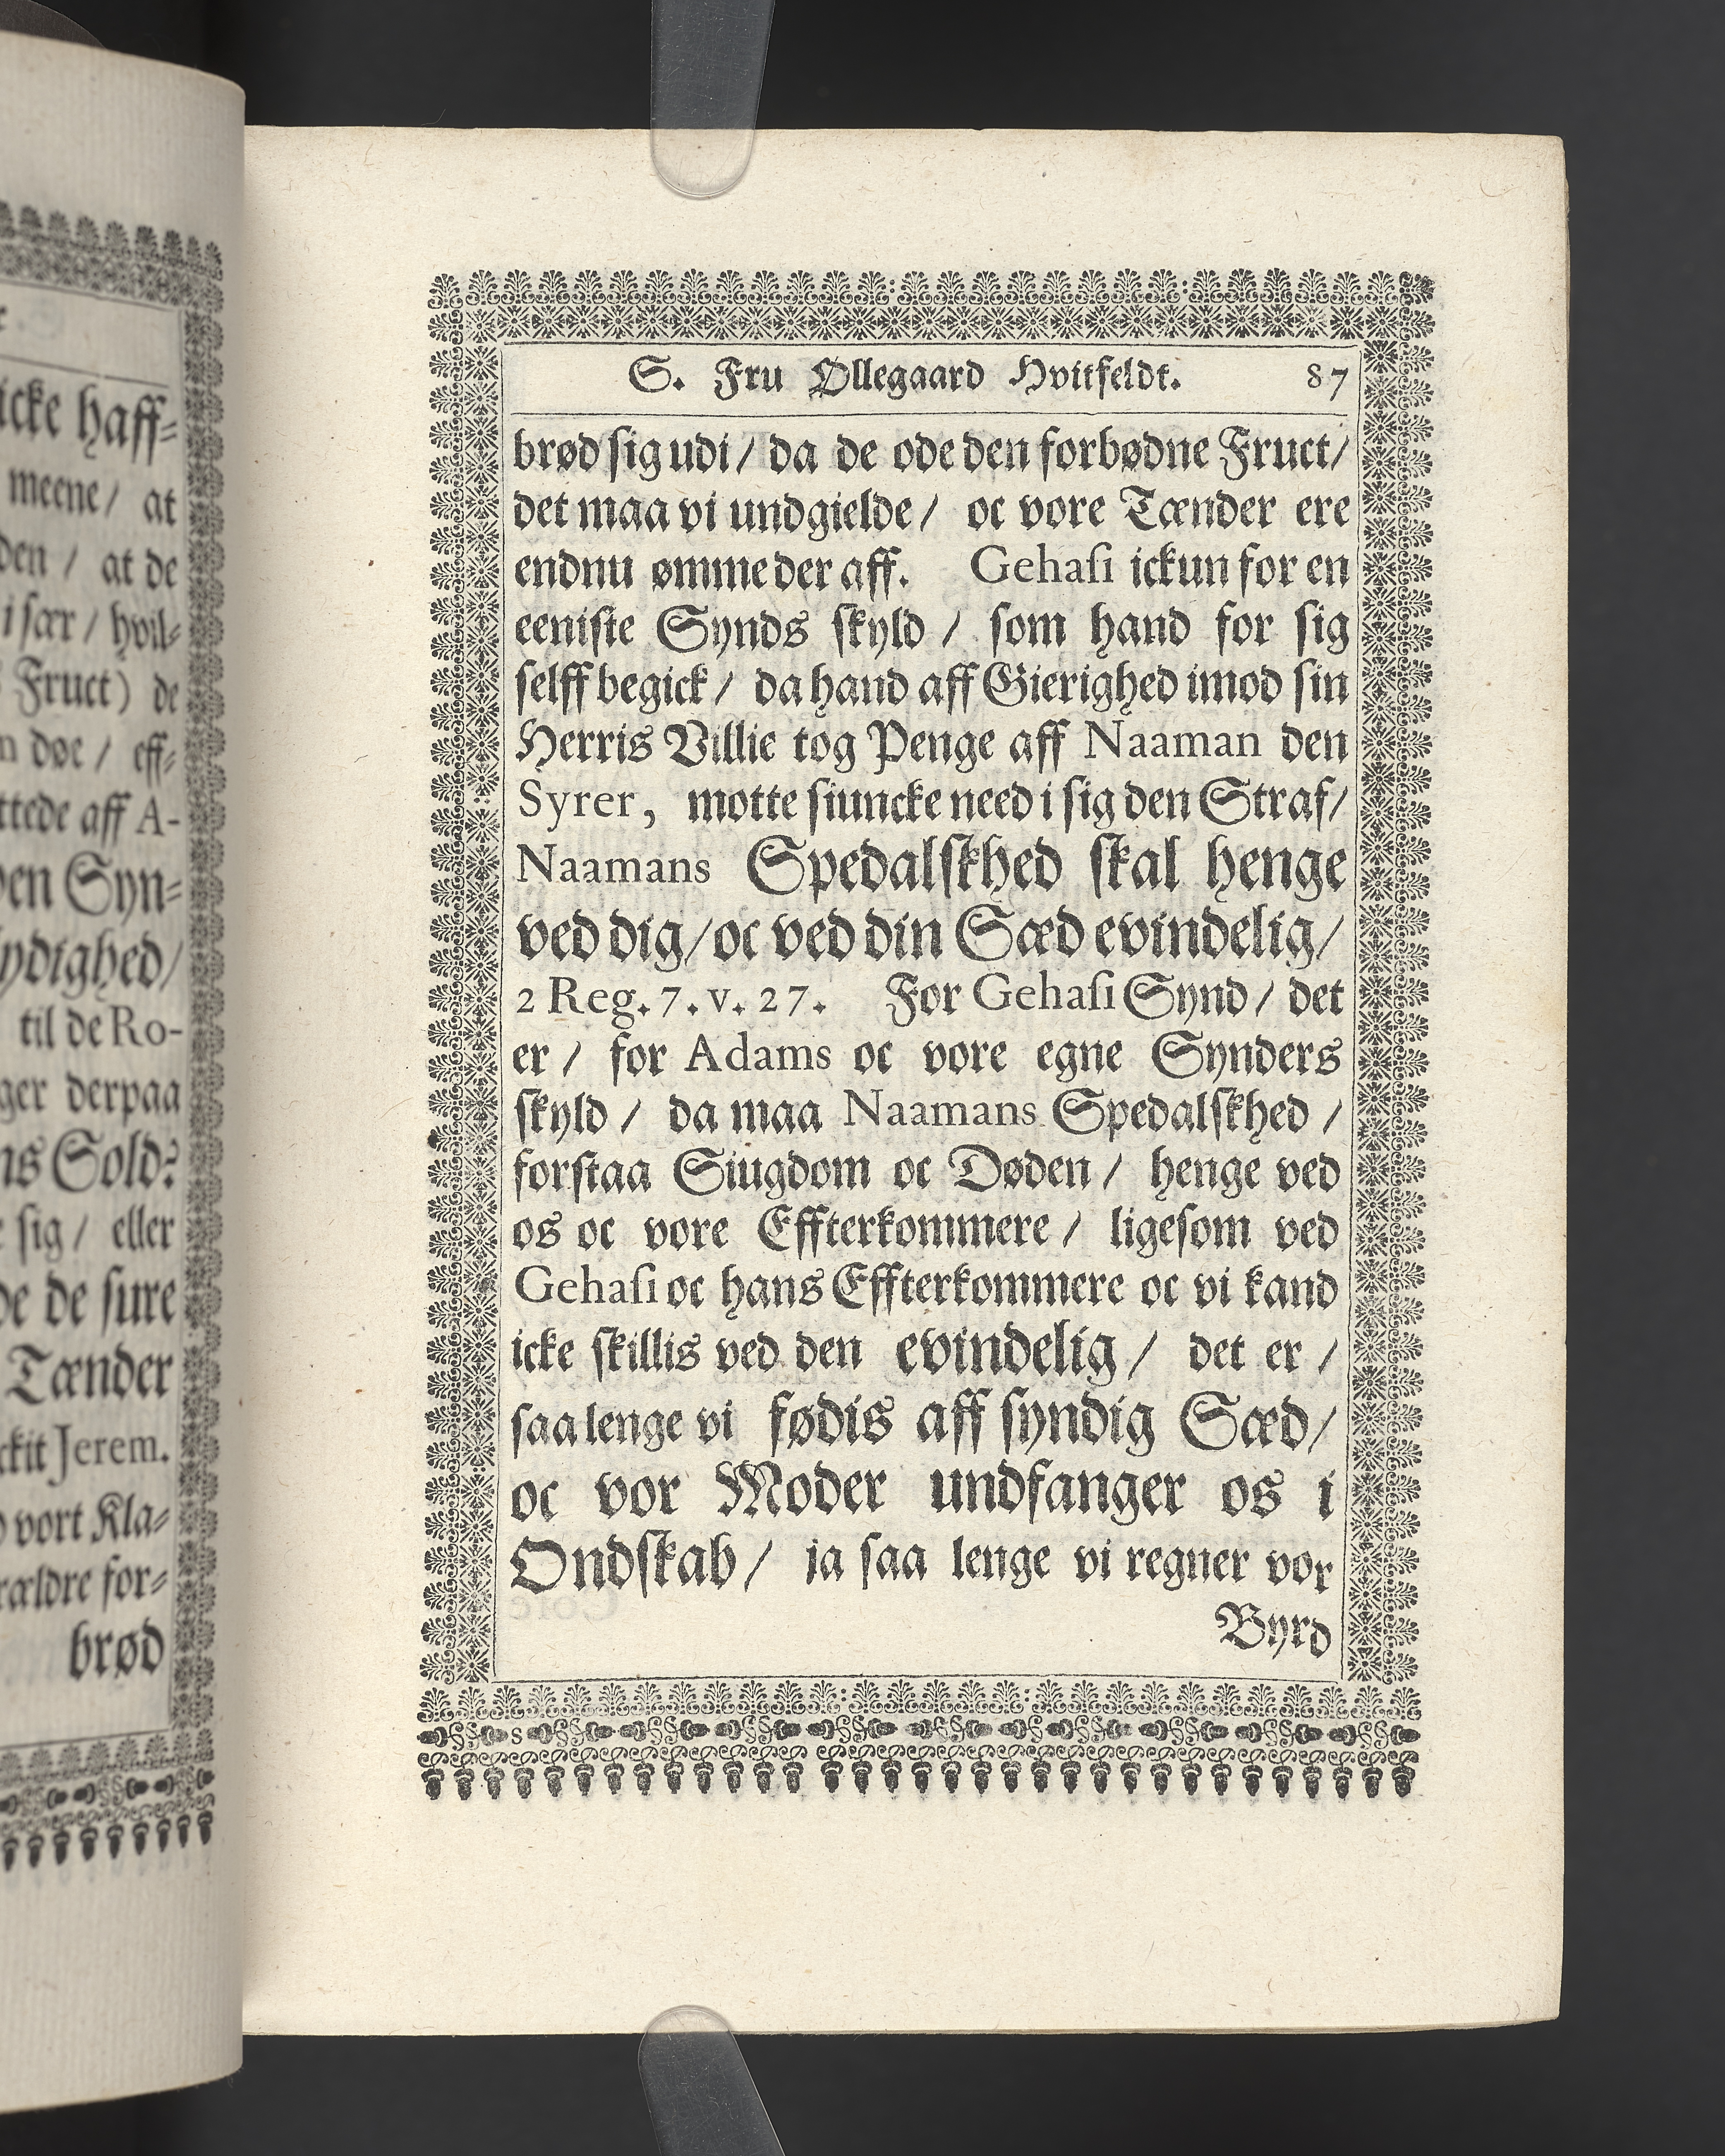 icke haff-
meene/ at
den / at de
i sær / hvil-
Fruct) de
døe / eff-
ttede aff A-
den Syn-
lydighed/
til de Ro-
ger derpaa
ns Sold:
sig/ eller
de de sure
Tænder
ckit Jerem.
vort Kla-
rældre for-
brød
S. Fru Øllegaard Hvitfeldt. 87
brød sig udi/ da de ode den forbødne Fruct/
det maa vi undgielde/ oc vore Tænder ere
endnu ømme der aff. Gehasi ickun for en
eeniste Synds skyld / som hand for sig
selff begick/ da hand aff Gierighed imod sin
Herris Villie tog Penge aff Naaman den
Syrer, motte siuncke need i sig den Straf/
Naamans Spedalskhed skal henge
ved dig/ oc ved din Sæd evindelig/
2 Reg. 7. v. 27. For Gehasi Synd/ det
er/ for Adams oc vore egne Synders
skyld/ da maa Naamans Spedalskhed/
forstaa Siugdom oc Døden/ henge ved
os oc vore Effterkommere/ ligesom ved
Gehasi oc hans Effterkommere oc vi kand
icke skillis ved den evindelig/ det er/
saa lenge vi fødis aff syndig Sæd/
oc vor Moder undfanger os i
Ondskab/ ia saa lenge vi regner vor
Byrd